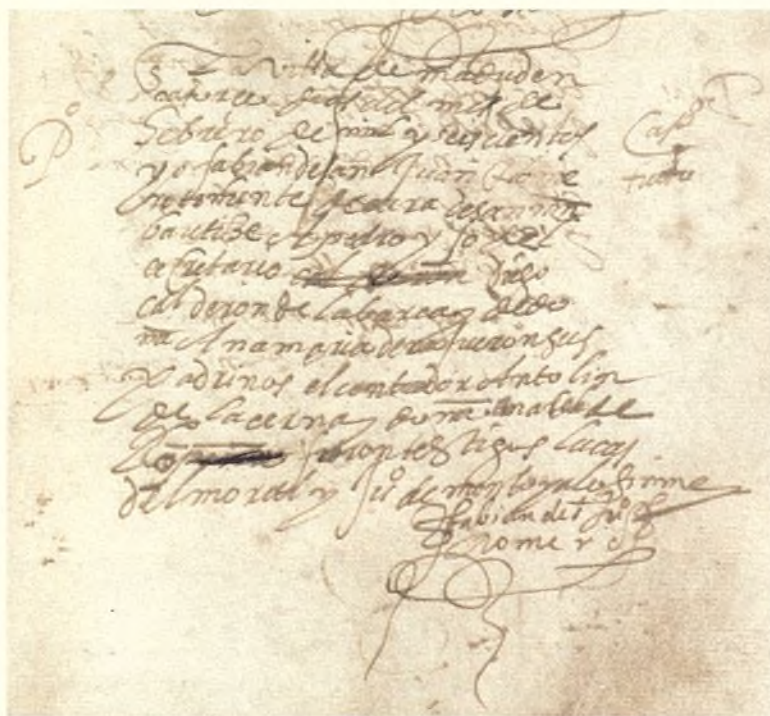 En la villa de madrid en
catorce dias del mes de
hebrero de mil y seiscientos
yo fabian de san Juan Romero
teniente de cura de san min
bautice a pedro yjo del
secretario diego
calderon de la barca y de do
na Ana maria de fueron sus
padrinos el contador antolin
de la cerna y doña ana de
fueron testigos lucas
del moral y Juº de montoya lo firme
fabian de S. Juº
Romero
Pº